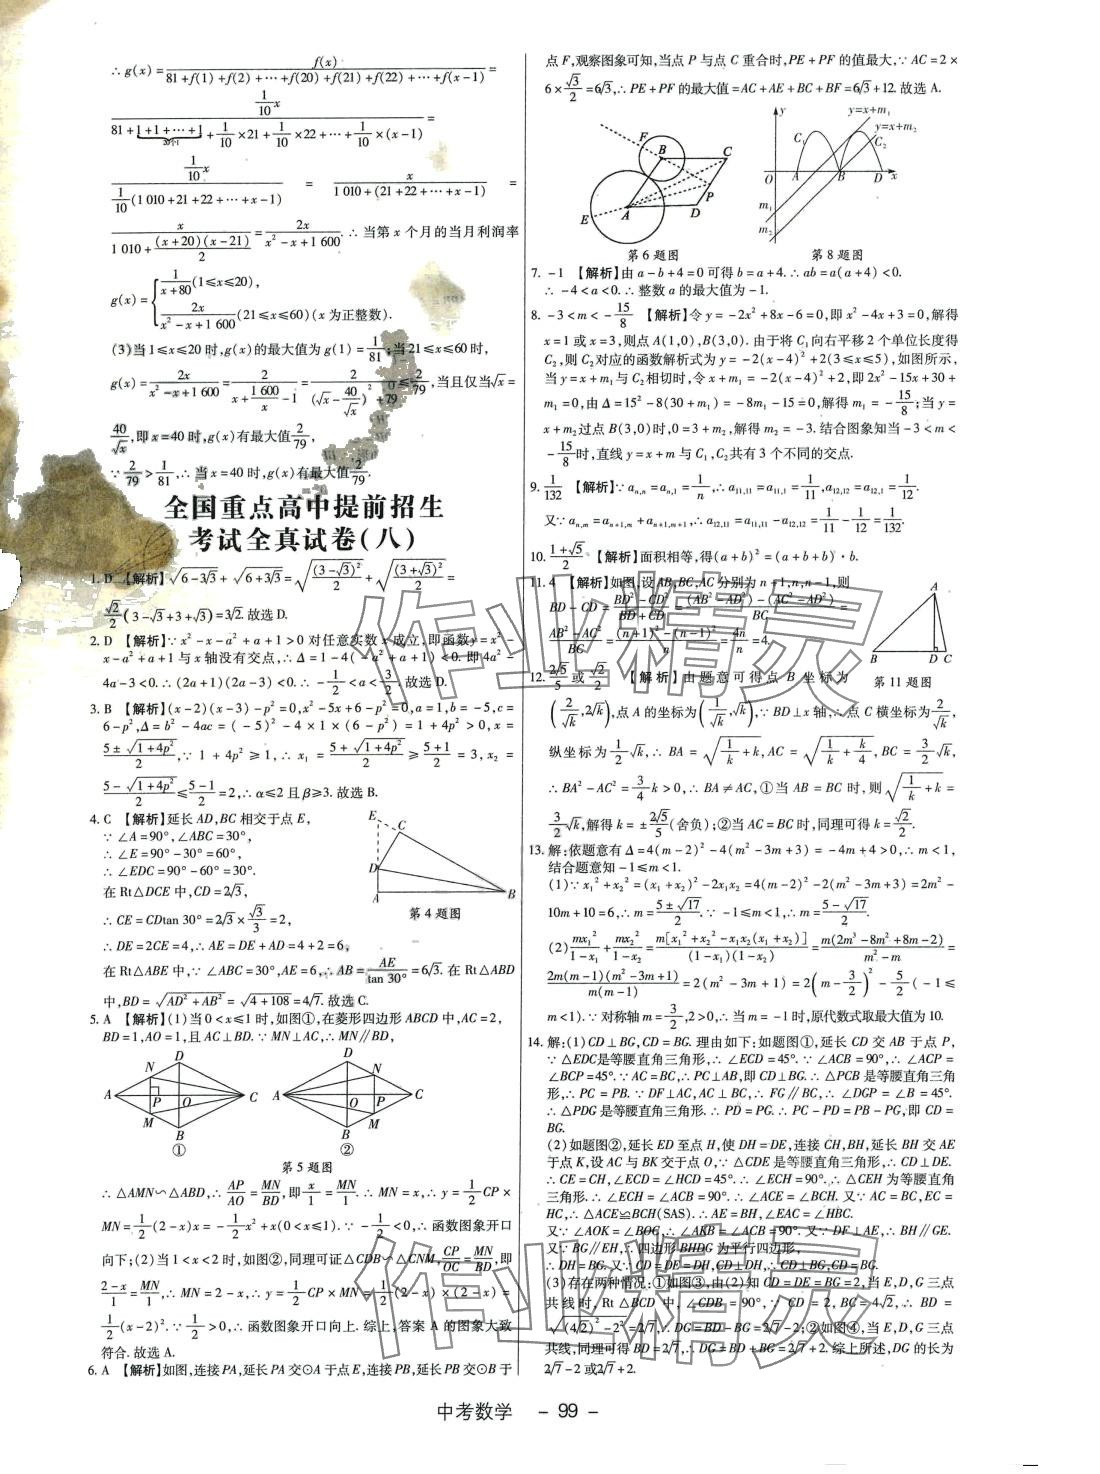 ∴g(x)=f(x)/(81+f(1)+f(2)+…+f(20)+f(21)+f(22)+…+f(x-1))=
(1/10)x/(81+1+1+…+1+1/10×21+1/10×22+…+1/10×(x-1))=
(1/10)x/((1/10)(1 010+21+22+…+x-1))=x/(1 010+(21+22+…+x-1))=
x/(1 010+(x+20)(x-21)/2)=2x/(x²-x+1 600).∴当第 x 个月的当月利润率
g(x)={1/(x+80)(1≤x≤20),
2x/(x²-x+1 600)(21≤x≤60)(x 为正整数).
(3)当1≤x≤20时,g(x)的最大值为g(1)=1/81;当21≤x≤60时,
g(x)=2x/(x²-x+1 600)=2/(x+1 600/x-1)=2/((√x-40/√x)²+79)≤2/79,当且仅当√x=
40/√x,即x=40时,g(x)有最大值2/79.
∵2/79>1/81,∴当x=40时,g(x)有最大值2/79.
全国重点高中提前招生
考试全真试卷(八)
1. D 【解析】√(6-3√3)+√(6+3√3)=√((3-√3)²/2)+√((3+√3)²/2)=
√2/2(3-√3+3+√3)=3√2.故选D.
2. D 【解析】∵x²-x-a²+a+1>0对任意实数x成立,即函数y=x²-
x-a²+a+1与x轴没有交点,∴Δ=1-4(-a²+a+1)<0.即4a²-
4a-3<0.∴(2a+1)(2a-3)<0.∴-1/2<a<3/2.故选D.
3. B 【解析】(x-2)(x-3)-p²=0,x²-5x+6-p²=0,a=1,b=-5,c=
6-p²,Δ=b²-4ac=(-5)²-4×1×(6-p²)=1+4p²>0,x=
(5±√(1+4p²))/2,∵1+4p²≥1,∴x₁=(5+√(1+4p²))/2≥(5+1)/2=3,x₂=
(5-√(1+4p²))/2≤(5-1)/2=2,∴α≤2且β≥3.故选B.
4. C 【解析】延长AD,BC相交于点E,
∵∠A=90°,∠ABC=30°,
∴∠E=90°-30°=60°,
∴∠EDC=90°-60°=30°.
在Rt△DCE中,CD=2√3,
∴CE=CDtan 30°=2√3×√3/3=2,
E C D A B
第4题图
∴DE=2CE=4,∴AE=DE+AD=4+2=6,
在Rt△ABE中,∵∠ABC=30°,AE=6,∴AB=AE/tan 30°=6√3.在Rt△ABD
中,BD=√(AD²+AB²)=√(4+108)=4√7.故选C.
5. A 【解析】(1)当0<x≤1时,如图①,在菱形四边形ABCD中,AC=2,
BD=1,AO=1,且AC⊥BD.∵MN⊥AC,∴MN∥BD,
D N A P O C M B ①
D N A O P C M B ②
第5题图
∴△AMN∽△ABD,∴AP/AO=MN/BD,即x/1=MN/1.∴MN=x,∴y=1/2CP×
MN=1/2(2-x)x=-1/2x²+x(0<x≤1).∵-1/2<0,∴函数图象开口
向下;(2)当1<x<2时,如图②,同理可证△CDB∽△CNM,CP/OC=MN/BD,即
(2-x)/1=MN/1,∴MN=2-x,∴y=1/2CP×MN=1/2(2-x)×(2-x)=
1/2(x-2)².∵1/2>0,∴函数图象开口向上.综上,答案A的图象大致
符合.故选A.
6. A 【解析】如图,连接PA,延长PA交⊙A于点E,连接PB,延长PB交⊙B于
点F,观察图象可知,当点P与点C重合时,PE+PF的值最大,∵AC=2×
6×√3/2=6√3,∴PE+PF的最大值=AC+AE+BC+BF=6√3+12.故选A.
F B C P E A D
第6题图
y y=x+m₁ y=x+m₂ C₁ C₂ O A B D x m₁ m₂
第8题图
7. -1 【解析】由a-b+4=0可得b=a+4.∴ab=a(a+4)<0.
∴-4<a<0.∴整数a的最大值为-1.
8. -3<m<-15/8 【解析】令y=-2x²+8x-6=0,即x²-4x+3=0,解得
x=1或x=3,则点A(1,0),B(3,0).由于将C₁向右平移2个单位长度得
C₂,则C₂对应的函数解析式为y=-2(x-4)²+2(3≤x≤5),如图所示,
当y=x+m₁与C₂相切时,令x+m₁=-2(x-4)²+2,即2x²-15x+30+
m₁=0,由Δ=15²-8(30+m₁)=-8m₁-15=0,解得m₁=-15/8;当y=
x+m₂过点B(3,0)时,0=3+m₂,解得m₂=-3.结合图象知当-3<m<
-15/8时,直线y=x+m与C₁,C₂共有3个不同的交点.
9. 1/132 【解析】∵aₙ,ₙ=aₙ,₁=1/n,∴a₁₁,₁₁=a₁₁,₁=1/11,a₁₂,₁₂=a₁₂,₁=1/12.
又∵aₙ,ₘ=aₙ₊₁,ₘ+aₙ₊₁,ₘ₊₁,∴a₁₂,₁₁=a₁₁,₁₁-a₁₂,₁₂=1/11-1/12=1/132.
10. (1+√5)/2 【解析】面积相等,得(a+b)²=(a+b+b)·b.
11. 4 【解析】如图,设AB,BC,AC分别为n+1,n,n-1,则
BD-CD=(BD²-CD²)/(BD+CD)=((AB²-AD²)-(AC²-AD²))/BC=
(AB²-AC²)/BC=((n+1)²-(n-1)²)/n=4n/n=4.
A B D C
第11题图
12. 2√5/5或√2/2 【解析】由题意可得点B坐标为
(2/√k,2√k),点A的坐标为(1/√k,√k),∵BD⊥x轴,∴点C横坐标为2/√k,
纵坐标为1/2√k,∴BA=√(1/k+k),AC=√(1/k+k/4),BC=3/2√k,
∴BA²-AC²=3/4k>0,∴BA≠AC,①当AB=BC时,则√(1/k+k)=
3/2√k,解得k=±2√5/5(舍负);②当AC=BC时,同理可得k=√2/2.
13. 解:依题意有Δ=4(m-2)²-4(m²-3m+3)=-4m+4>0,∴m<1,
结合题意知-1≤m<1.
(1)∵x₁²+x₂²=(x₁+x₂)²-2x₁x₂=4(m-2)²-2(m²-3m+3)=2m²-
10m+10=6,∴m=(5±√17)/2.∵-1≤m<1,∴m=(5-√17)/2.
(2)mx₁²/(1-x₁)+mx₂²/(1-x₂)=m[x₁²+x₂²-x₁x₂(x₁+x₂)]/((1-x₁)(1-x₂))=m(2m³-8m²+8m-2)/(m²-m)=
2m(m-1)(m²-3m+1)/(m(m-1))=2(m²-3m+1)=2(m-3/2)²-5/2(-1≤
m<1).∵对称轴m=3/2,2>0,∴当m=-1时,原代数式取最大值为10.
14. 解:(1)CD⊥BG,CD=BG.理由如下:如题图①,延长CD交AB于点P,
∵△EDC是等腰直角三角形,∴∠ECD=45°.∵∠ACB=90°,∴∠ACP=
∠BCP=45°.∵AC=BC,∴PC⊥AB,即CD⊥BG.∴△PCB是等腰直角三角
形,∴PC=PB.∵DF⊥AC,AC⊥BC,∴FG∥BC,∴∠DGP=∠B=45°.
∴△PDG是等腰直角三角形.∴PD=PG.∴PC-PD=PB-PG,即CD=
BG.
(2)如题图②,延长ED至点H,使DH=DE,连接CH,BH,延长BH交AE
于点K,设AC与BK交于点O,∵△CDE是等腰直角三角形,∴CD⊥DE.
∴CE=CH,∠ECD=∠HCD=45°.∴∠ECH=90°.∴△CEH为等腰直角
三角形.∴∠ECH=∠ACB=90°.∴∠ACE=∠BCH.又∵AC=BC,EC=
HC,∴△ACE≌△BCH(SAS).∴AE=BH,∠EAC=∠HBC.
又∵∠AOK=∠BOC,∴∠AKB=∠ACB=90°.又∵DF⊥AE,∴BH∥GE.
又∵BG∥EH,∴四边形BHDG为平行四边形,
∴DH=BG.又∵CD=DE=DH,CD⊥DH,∴CD⊥BG,CD=BG.
(3)存在两种情况:①如图③,由(2)知CD=DE=BG=2,当E,D,G三点
共线时,Rt△BCD中,∠CDB=90°,∵CD=2,BC=4√2,∴BD=
√((4√2)²-2²)=2√7,∴DG=BD-BG=2√7-2;②如图④,当E,D,G三点
共线,同理可得BD=2√7,∴DG=BD+BG=2√7+2.综上所述,DG的长为
2√7-2或2√7+2.
作业精灵
作业精灵
中考数学 - 99 -